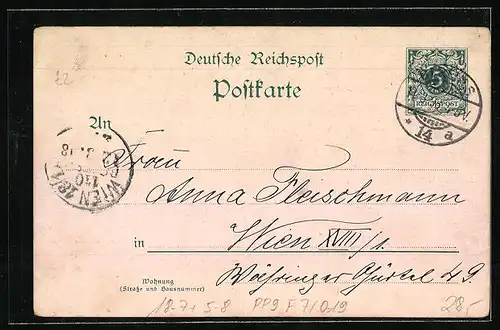 Deutsche Reichspost
Postkarte
5
REICHSPOST
14 a
An
WIEN 18/1
Frau
Anna Fleischmann
in Wien XVIII/1.
Wohnung
(Straße und Hausnummer)
Währinger Gürtel 49.
18-7+5-8 PP9 F71019
28,-